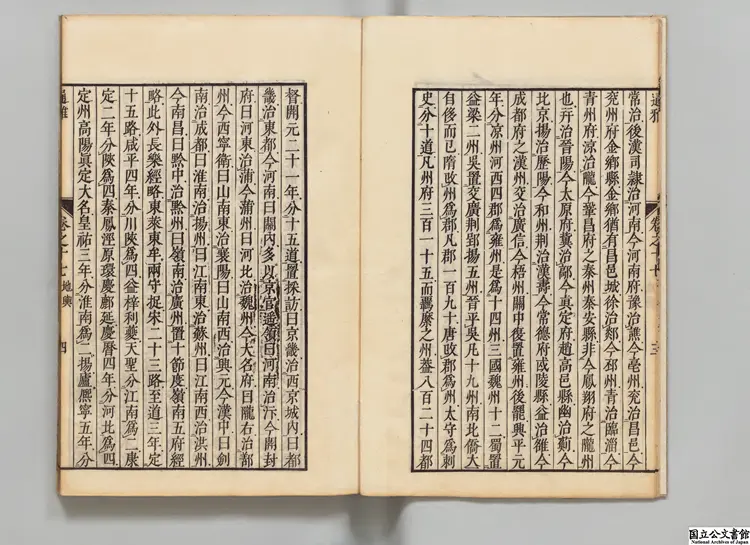 通雅
常治後漢司隷治河南今河南府豫治譙今亳州兖治昌邑今
兖州府金鄉縣金鄉猶有昌邑城徐治郯今邳州青治臨淄今
青州府涼治隴今鞏昌府之秦州秦安縣非今鳳翔府之隴州
也幷治晉陽今太原府冀治鄗今眞定府趙高邑縣幽治薊今
比京揚治歷陽今和州荆治漢壽今常德府或陵縣益治雒今
成都府之漢州交治廣信今梧州關中復置雍州後罷興平元
年分凉州河西四郡爲雍州是爲十四州三國魏州十二蜀置
益梁二州吳置交廣荆郢揚五州晉平吳凡十九州南北僑大
自後而已隋改州爲郡凡郡一百九十唐改郡爲州太守爲刺
史分十道凡州府三百一十五而羈縻之州葢八百二十四都
卷之十七
三
督開元二十一年分十五道置採訪曰京畿治西京城內曰都
畿治東都今河南曰關內多以京官遥領曰河南治汴今開封
府曰河東治蒲今蒲州曰河北治魏州今大名府曰隴右治鄯
州今西寧衛曰山南東治襄陽曰山南西治興元今漢中曰劍
南治成都曰淮南治揚州曰江南東治蘇州曰江南西治洪州
今南昌曰黔中治黔州曰嶺南治廣州置十節度嶺南五府經
略此外長樂經略東萊東牟兩守捉宋二十三路至道三年定
十五路咸平四年分川陝爲四益梓利夔天聖分江南爲二康
定二年分陝爲四秦鳳涇原環慶鄜延慶曆四年分河北爲四
定州高陽眞定大名皇祐三年分淮南爲二揚廬熈寧五年分
通雅
卷之十七
地輿
四
国立公文書館
National Archives of Japan